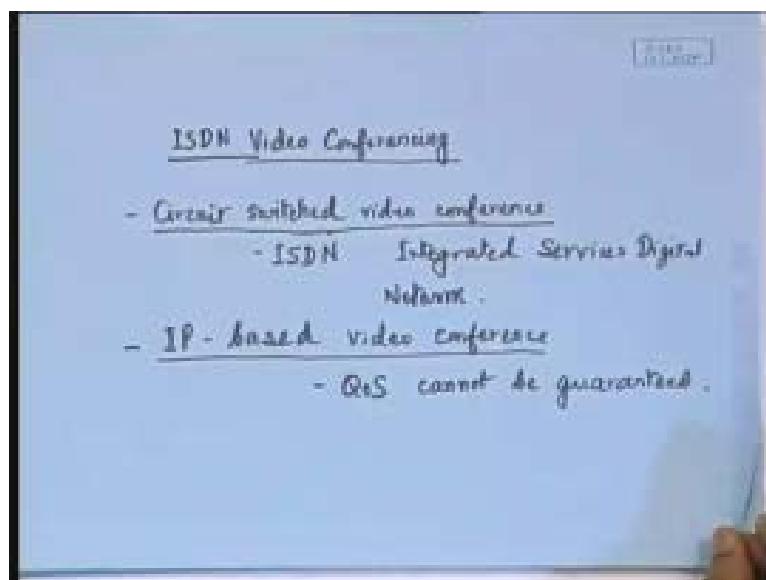 ISDN Video Conferencing
- Circuit switched video conference
- ISDN Integrated Services Digital
Network.
- IP-based video conference
- QoS cannot be guaranteed.